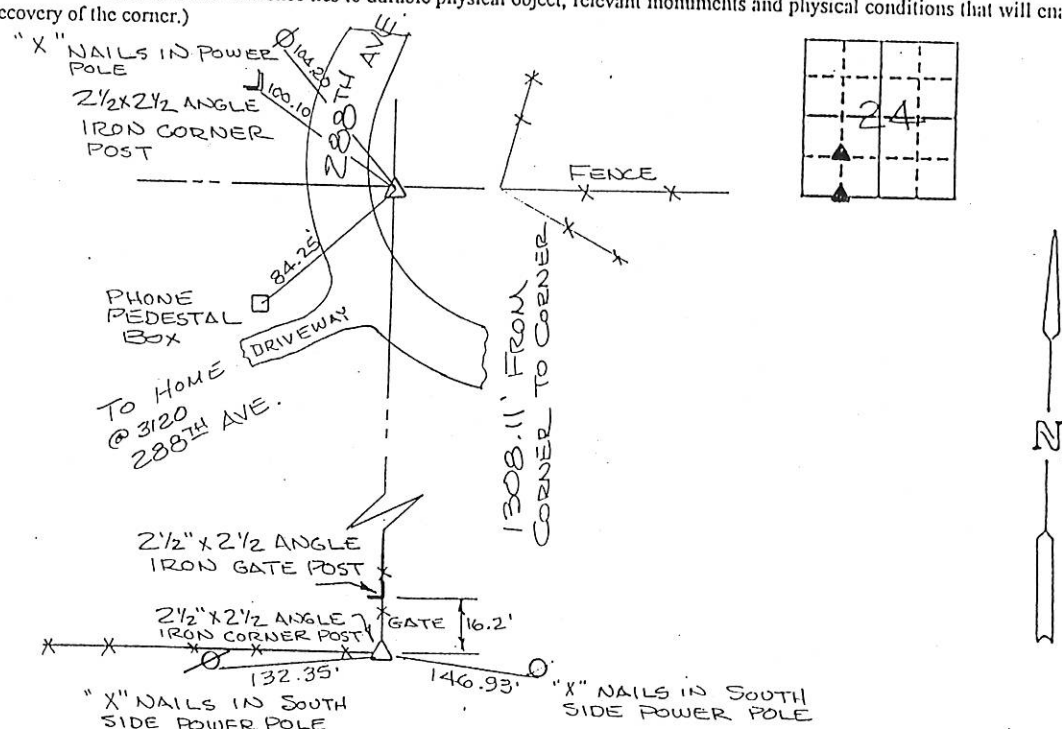 ties to durable physical object, relevant monuments and physical conditions that will
ecovery of the corner.)
"X" NAILS IN POWER
POLE
104.20
100.10
2½X2½ ANGLE
IRON CORNER
POST
288TH AVE.
24
FENCE
84.25'
PHONE
PEDESTAL
BOX
DRIVEWAY
TO HOME
@ 3120
288TH AVE.
1308.11' FROM
CORNER TO CORNER
N
2½" X 2½ ANGLE
IRON GATE POST
2½" X 2½ ANGLE
IRON CORNER POST
GATE
16.2'
132.35'
146.93'
"X" NAILS IN SOUTH
SIDE POWER POLE
"X" NAILS IN SOUTH
SIDE POWER POLE